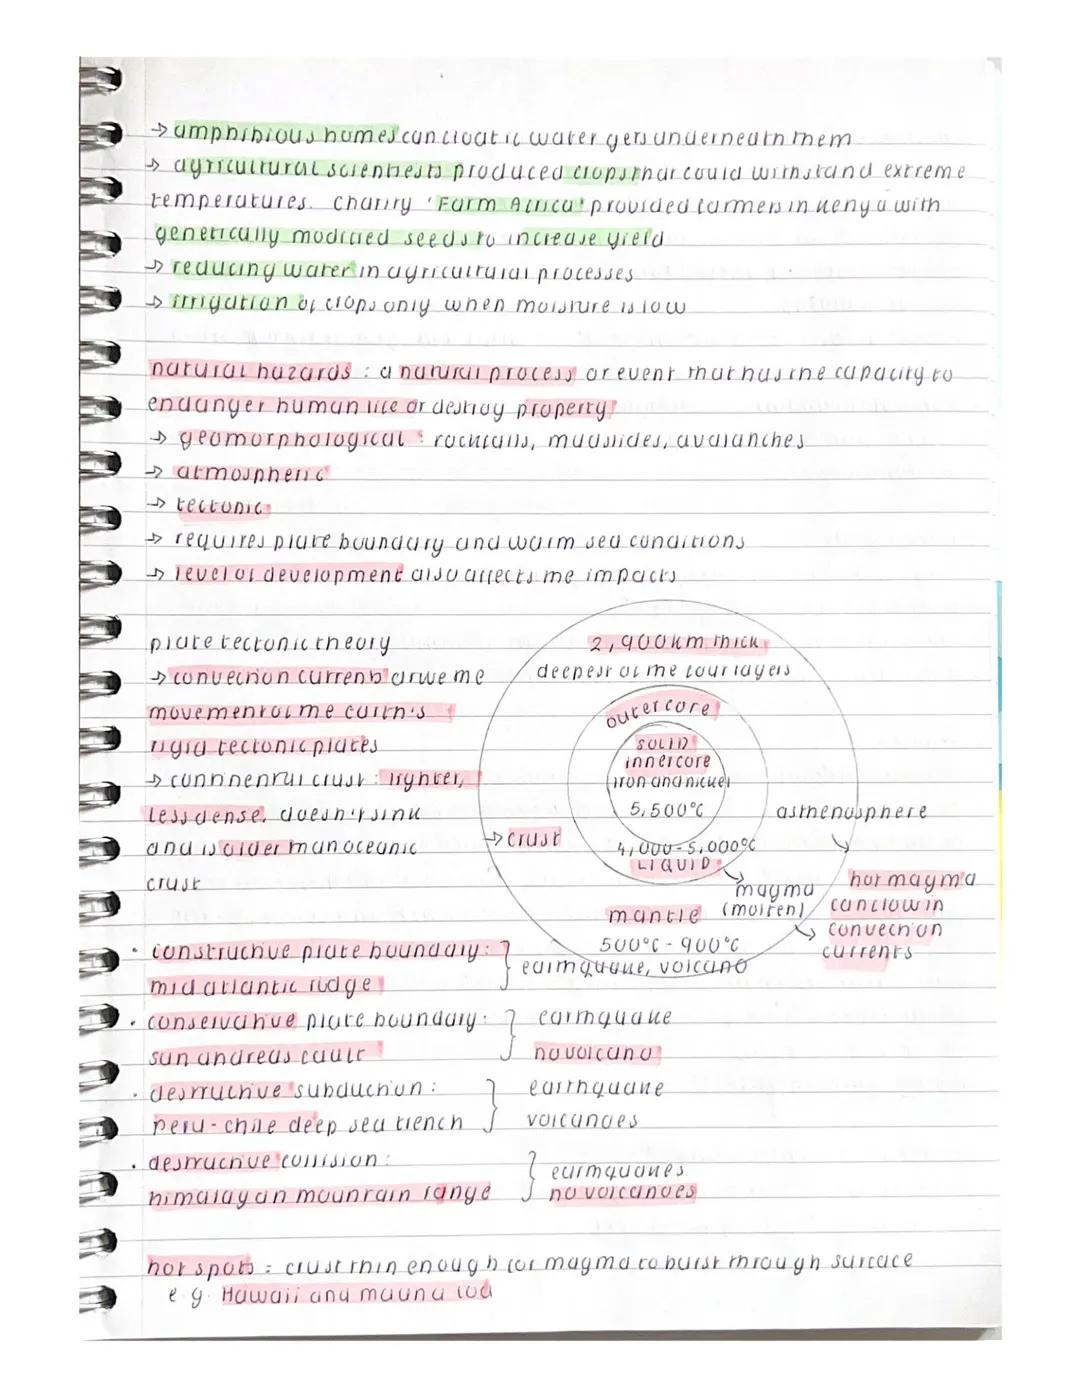 → amphibious homes can float if water gets underneath them
→ agricultural scientests produced crops that could withstand extreme
temperatures. Charity 'Farm Africa' provided farmers in Kenya with
genetically modified seeds to increase yield
→ reducing water in agricultural processes
→ irrigation of crops only when moisture is low
natural hazards : a natural process or event that has the capacity to
endanger human life or destroy property
→ geomorphological : rockfalls, mudslides, avalanches
→ atmospheric
→ tectonic
→ requires plate boundary and warm sea conditions
→ level of development also affects the impacts
plate tectonic theory
→ convection currents drive the
movement of the earth's
rigid tectonic plates
→ continental crust : lighter,
less dense, doesn't sink
and is older than oceanic
crust
2,900km thick
deepest of the four layers
outer core
SOLID
inner core
iron and nickel
5,500°C
4,000-5,000°C
LIQUID
→ crust
asthenosphere
magma
(molten)
hot magma
can flow in
convection
currents
mantle
500°C - 900°C
• constructive plate boundary:
mid atlantic ridge
earthquake, volcano
• conservative plate boundary:
san andreas fault
earthquake
no volcano
• destructive subduction :
peru-chile deep sea trench
earthquake
volcanoes
• destructive collision :
himalayan mountain range
earthquakes
no volcanoes
hot spots : crust thin enough for magma to burst through surface
e.g. Hawaii and mauna loa